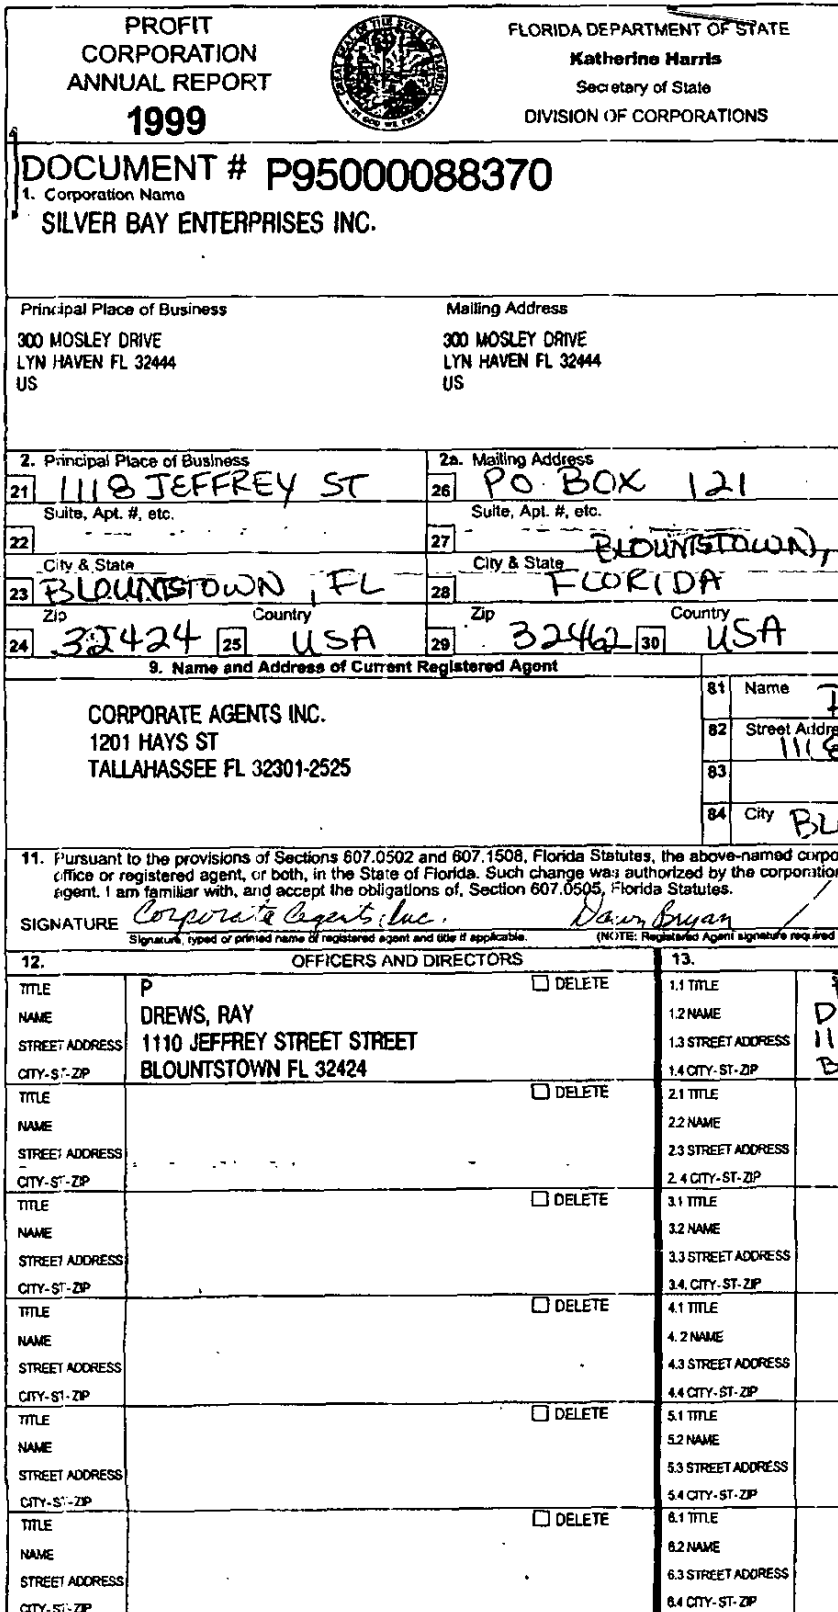 PROFIT
CORPORATION
ANNUAL REPORT
1999
FLORIDA DEPARTMENT OF STATE
Katherine Harris
Secretary of State
DIVISION OF CORPORATIONS
DOCUMENT # P95000088370
1. Corporation Name
SILVER BAY ENTERPRISES INC.
Principal Place of Business
300 MOSLEY DRIVE
LYN HAVEN FL 32444
US
Mailing Address
300 MOSLEY DRIVE
LYN HAVEN FL 32444
US
2. Principal Place of Business
21 1118 JEFFREY ST
Suite, Apt. #, etc.
22
City & State
23 BLOUNTSTOWN, FL
Zip
24 32424
Country
25 USA
2a. Mailing Address
26 PO. BOX 121
Suite, Apt. #, etc.
27 BLOUNTSTOWN,
City & State
28 FLORIDA
Zip
29 32462
Country
30 USA
9. Name and Address of Current Registered Agent
CORPORATE AGENTS INC.
1201 HAYS ST
TALLAHASSEE FL 32301-2525
81 Name
82 Street Addre
1118
83
84 City BL
11. Pursuant to the provisions of Sections 607.0502 and 607.1508, Florida Statutes, the above-named corpo
office or registered agent, or both, in the State of Florida. Such change was authorized by the corporation
agent. I am familiar with, and accept the obligations of, Section 607.0505, Florida Statutes.
SIGNATURE Corporate Agents, Inc. Dawn Bryan
Signature, typed or printed name of registered agent and title if applicable. (NOTE: Registered Agent signature required
12. OFFICERS AND DIRECTORS
TITLE P DELETE
NAME DREWS, RAY
STREET ADDRESS 1110 JEFFREY STREET STREET
CITY-ST-ZIP BLOUNTSTOWN FL 32424
TITLE DELETE
NAME
STREET ADDRESS
CITY-ST-ZIP
TITLE DELETE
NAME
STREET ADDRESS
CITY-ST-ZIP
TITLE DELETE
NAME
STREET ADDRESS
CITY-ST-ZIP
TITLE DELETE
NAME
STREET ADDRESS
CITY-ST-ZIP
TITLE DELETE
NAME
STREET ADDRESS
CITY-ST-ZIP
13.
1.1 TITLE
1.2 NAME D
1.3 STREET ADDRESS 11
1.4 CITY-ST-ZIP B
2.1 TITLE
2.2 NAME
2.3 STREET ADDRESS
2.4 CITY-ST-ZIP
3.1 TITLE
3.2 NAME
3.3 STREET ADDRESS
3.4. CITY-ST-ZIP
4.1 TITLE
4.2 NAME
4.3 STREET ADDRESS
4.4 CITY-ST-ZIP
5.1 TITLE
5.2 NAME
5.3 STREET ADDRESS
5.4 CITY-ST-ZIP
6.1 TITLE
6.2 NAME
6.3 STREET ADDRESS
6.4 CITY-ST-ZIP